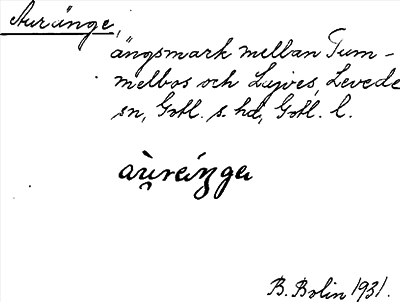 Auränge,
ängsmark mellan Tum-
melbos och Lajves, Levede
sn, Gotl. s. hd, Gotl. l.
B. Bolin 1931.